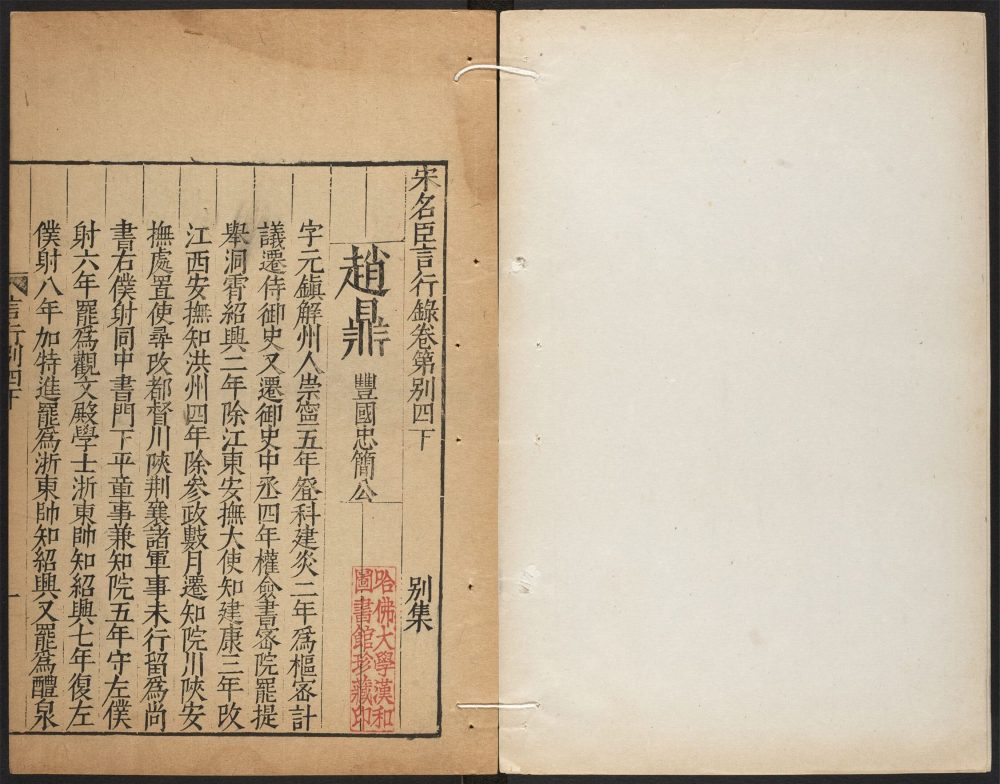 宋名臣言行錄卷第别四下 别集
趙鼎 豐國忠簡公
哈佛大學漢和
圖書館珍藏印
字元鎭解州人崇寧五年登科建炎二年爲樞密計
議遷侍御史又遷御史中丞四年權僉書密院罷提
舉洞霄紹興二年除江東安撫大使知建康三年改
江西安撫知洪州四年除參政數月遷知院川陝安
撫處置使尋改都督川陝荆襄諸軍事未行留爲尚
書右僕射同中書門下平章事兼知院五年守左僕
射六年罷爲觀文殿學士浙東帥知紹興七年復左
僕射八年加特進罷爲浙東帥知紹興又罷爲醴泉
言行别四下
一